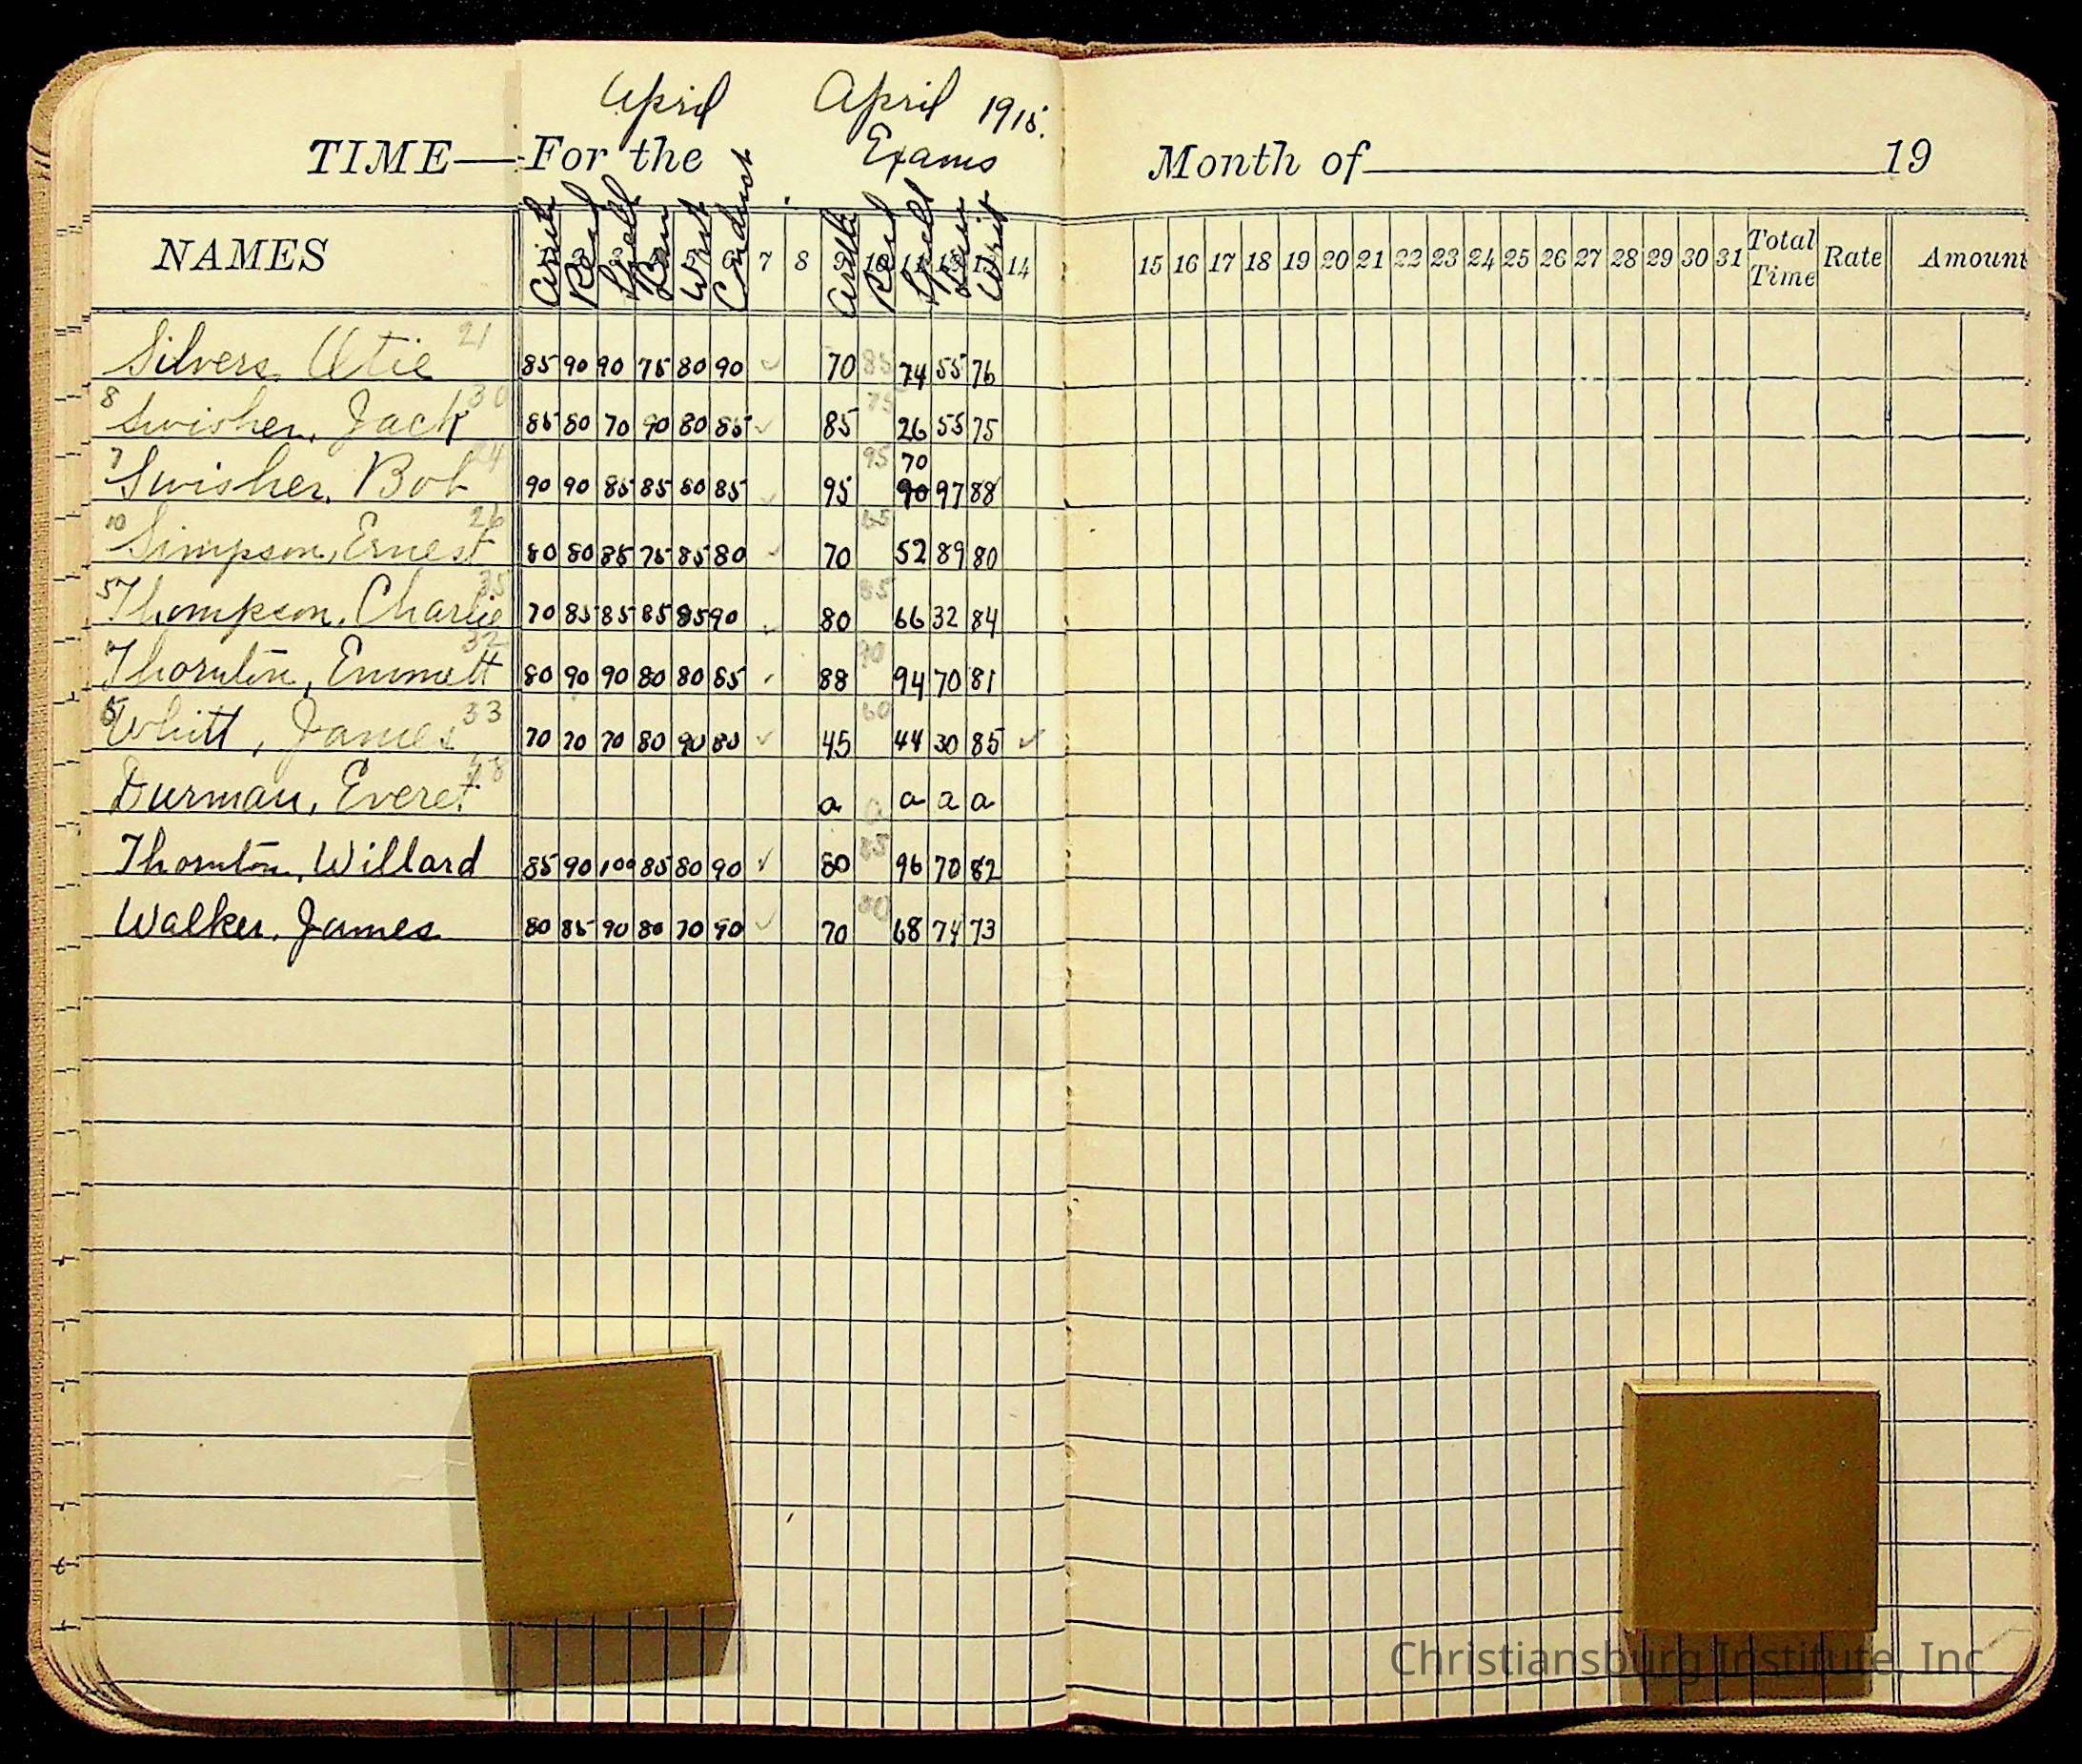 April April 1915.
TIME— For the Exams Month of 19
NAMES Arith Read Spell Write Conduct 7 8 Arith Read Spell Writ 14 15 16 17 18 19 20 21 22 23 24 25 26 27 28 29 30 31 Total Time Rate Amount
Silvers, Otie 21 85 90 90 75 80 90 ✓ 70 85 74 55 76
8 Swisher, Jack 30 85 80 70 90 80 85 ✓ 85 75 26 55 75
7 Swisher, Bob 24 90 90 85 85 80 85 ✓ 95 95 70 90 97 88
10 Simpson, Ernest 26 80 80 85 75 85 80 ✓ 70 65 52 89 80
5 Thompson, Charlie 35 70 85 85 85 85 90 ✓ 80 85 66 32 84
Thornton, Emmett 32 80 90 90 80 80 85 ✓ 88 90 94 70 81
Whitt, James 33 70 70 70 80 90 80 ✓ 45 60 44 30 85 ✓
Durman, Everet a a a a a
Thornton, Willard 85 90 100 85 80 90 ✓ 80 85 96 70 82
Walker, James 80 85 90 80 70 90 ✓ 70 80 68 74 73
Christiansburg Institute, Inc